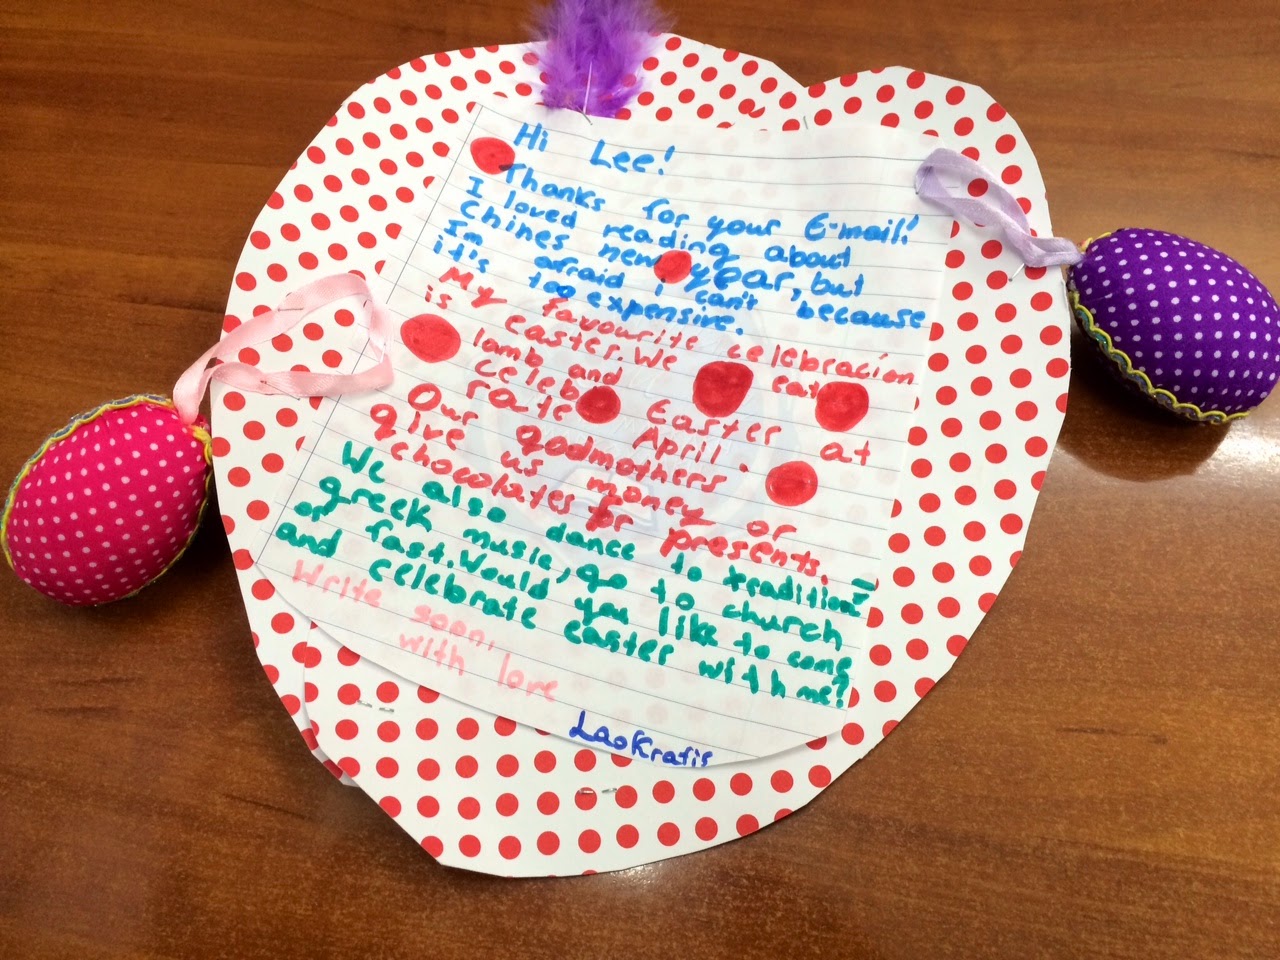 Hi Lee!
Thanks for your E-mail!
I loved reading about
Chines new year, but
I'm afraid I can't because
it's too expensive.
My favourite celebración
is easter. We eat
lamb and
celeb
rate Easter at
April.
Our godmothers
give us money or
chocolates for presents.
We also dance to tradition
greek music, go to church
or fast. Would you like to come
and celebrate easter with me?
Write soon,
with love
Laokratis